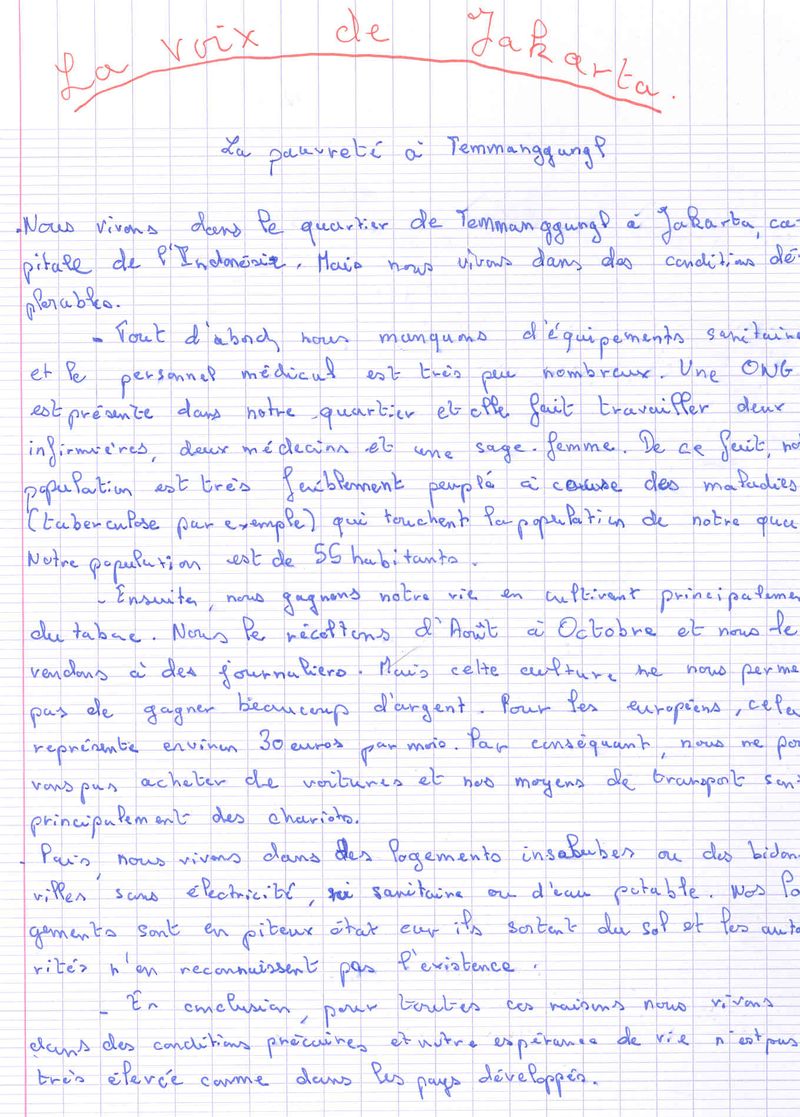 La voix de Jakarta.
La pauvreté à Temmanggungl
.Nous vivons dans le quartier de Temmanggungl à Jakarta, ca-
pitale de l'Indonésie. Mais nous vivons dans des conditions dé-
plorables.
- Tout d'abord, nous manquons d'équipements sanitaire
et le personnel médical est très peu nombreux. Une ONG
est présente dans notre quartier et elle fait travailler deux
infirmières, deux médecins et une sage-femme. De ce fait, no
population est très faiblement peuplé à cause des maladies
(tuberculose par exemple) qui touchent la population de notre qua
Notre population est de 55 habitants.
- Ensuite, nous gagnons notre vie en cultivant principaleme
du tabac. Nous le récoltons d'Août à Octobre et nous le
vendons à des journaliers. Mais cette culture ne nous perme
pas de gagner beaucoup d'argent. Pour les européens, cela
représente environ 30 euros par mois. Par conséquant, nous ne pou
vons pas acheter de voitures et nos moyens de transport son
principalement des chariots.
- Puis, nous vivons dans des logements insalubes ou des bidon
villes sans électricité, ni sanitaire ou d'eau potable. Nos lo
gements sont en piteux état car ils sortent du sol et les auto
rités n'en reconnaissent pas l'existence.
- En conclusion, pour toutes ces raisons nous vivons
dans des conditions précaires et notre espérance de vie n'est pas
très élevée comme dans les pays développés.